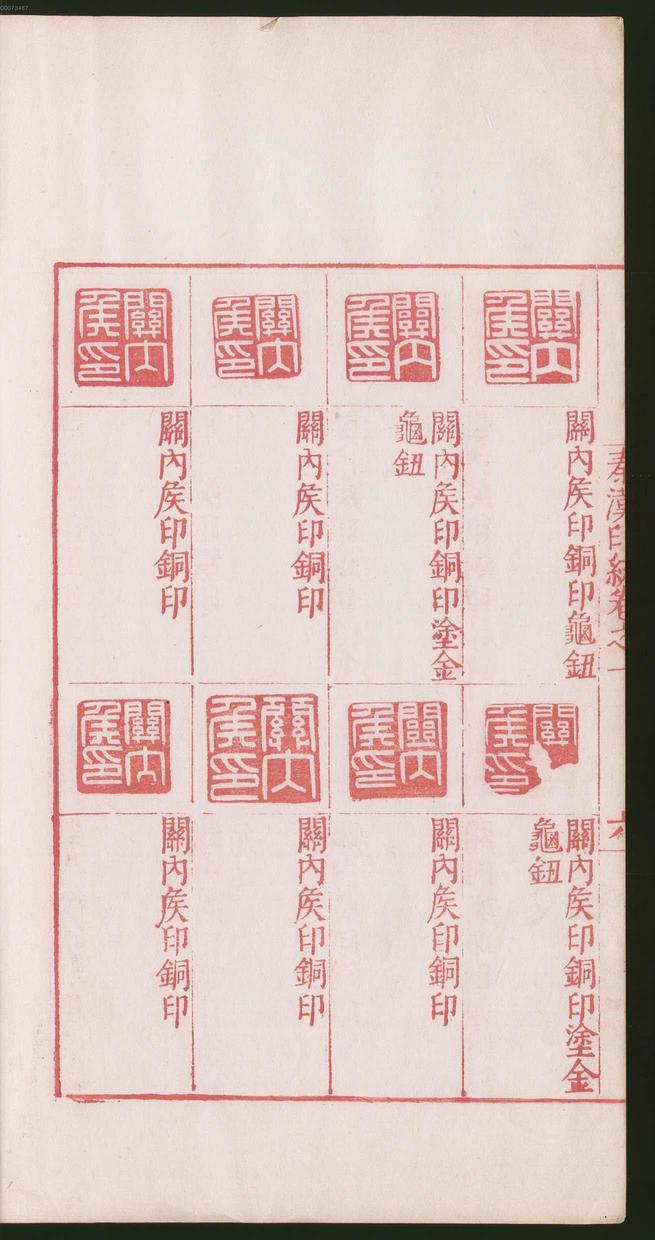 00073467
秦漢印統卷之一
六
關內矦印
關內矦印銅印龜鈕
關內矦印
關內矦印銅印塗金
龜鈕
關內矦印
關內矦印銅印
關內矦印
關內矦印銅印
關內矦印
關內矦印銅印塗金
龜鈕
關內矦印
關內矦印銅印
關內矦印
關內矦印銅印
關內矦印
關內矦印銅印